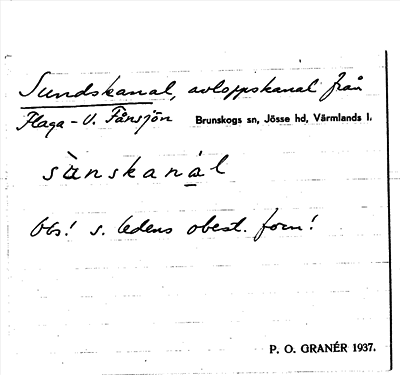 Sundskanal, avloppskanal från
Flaga - V. Fånsjön Brunskogs sn, Jösse hd, Värmlands l.
sùnskanál
Obs! s. ledens obest. form!
P. O. GRANÉR 1937.